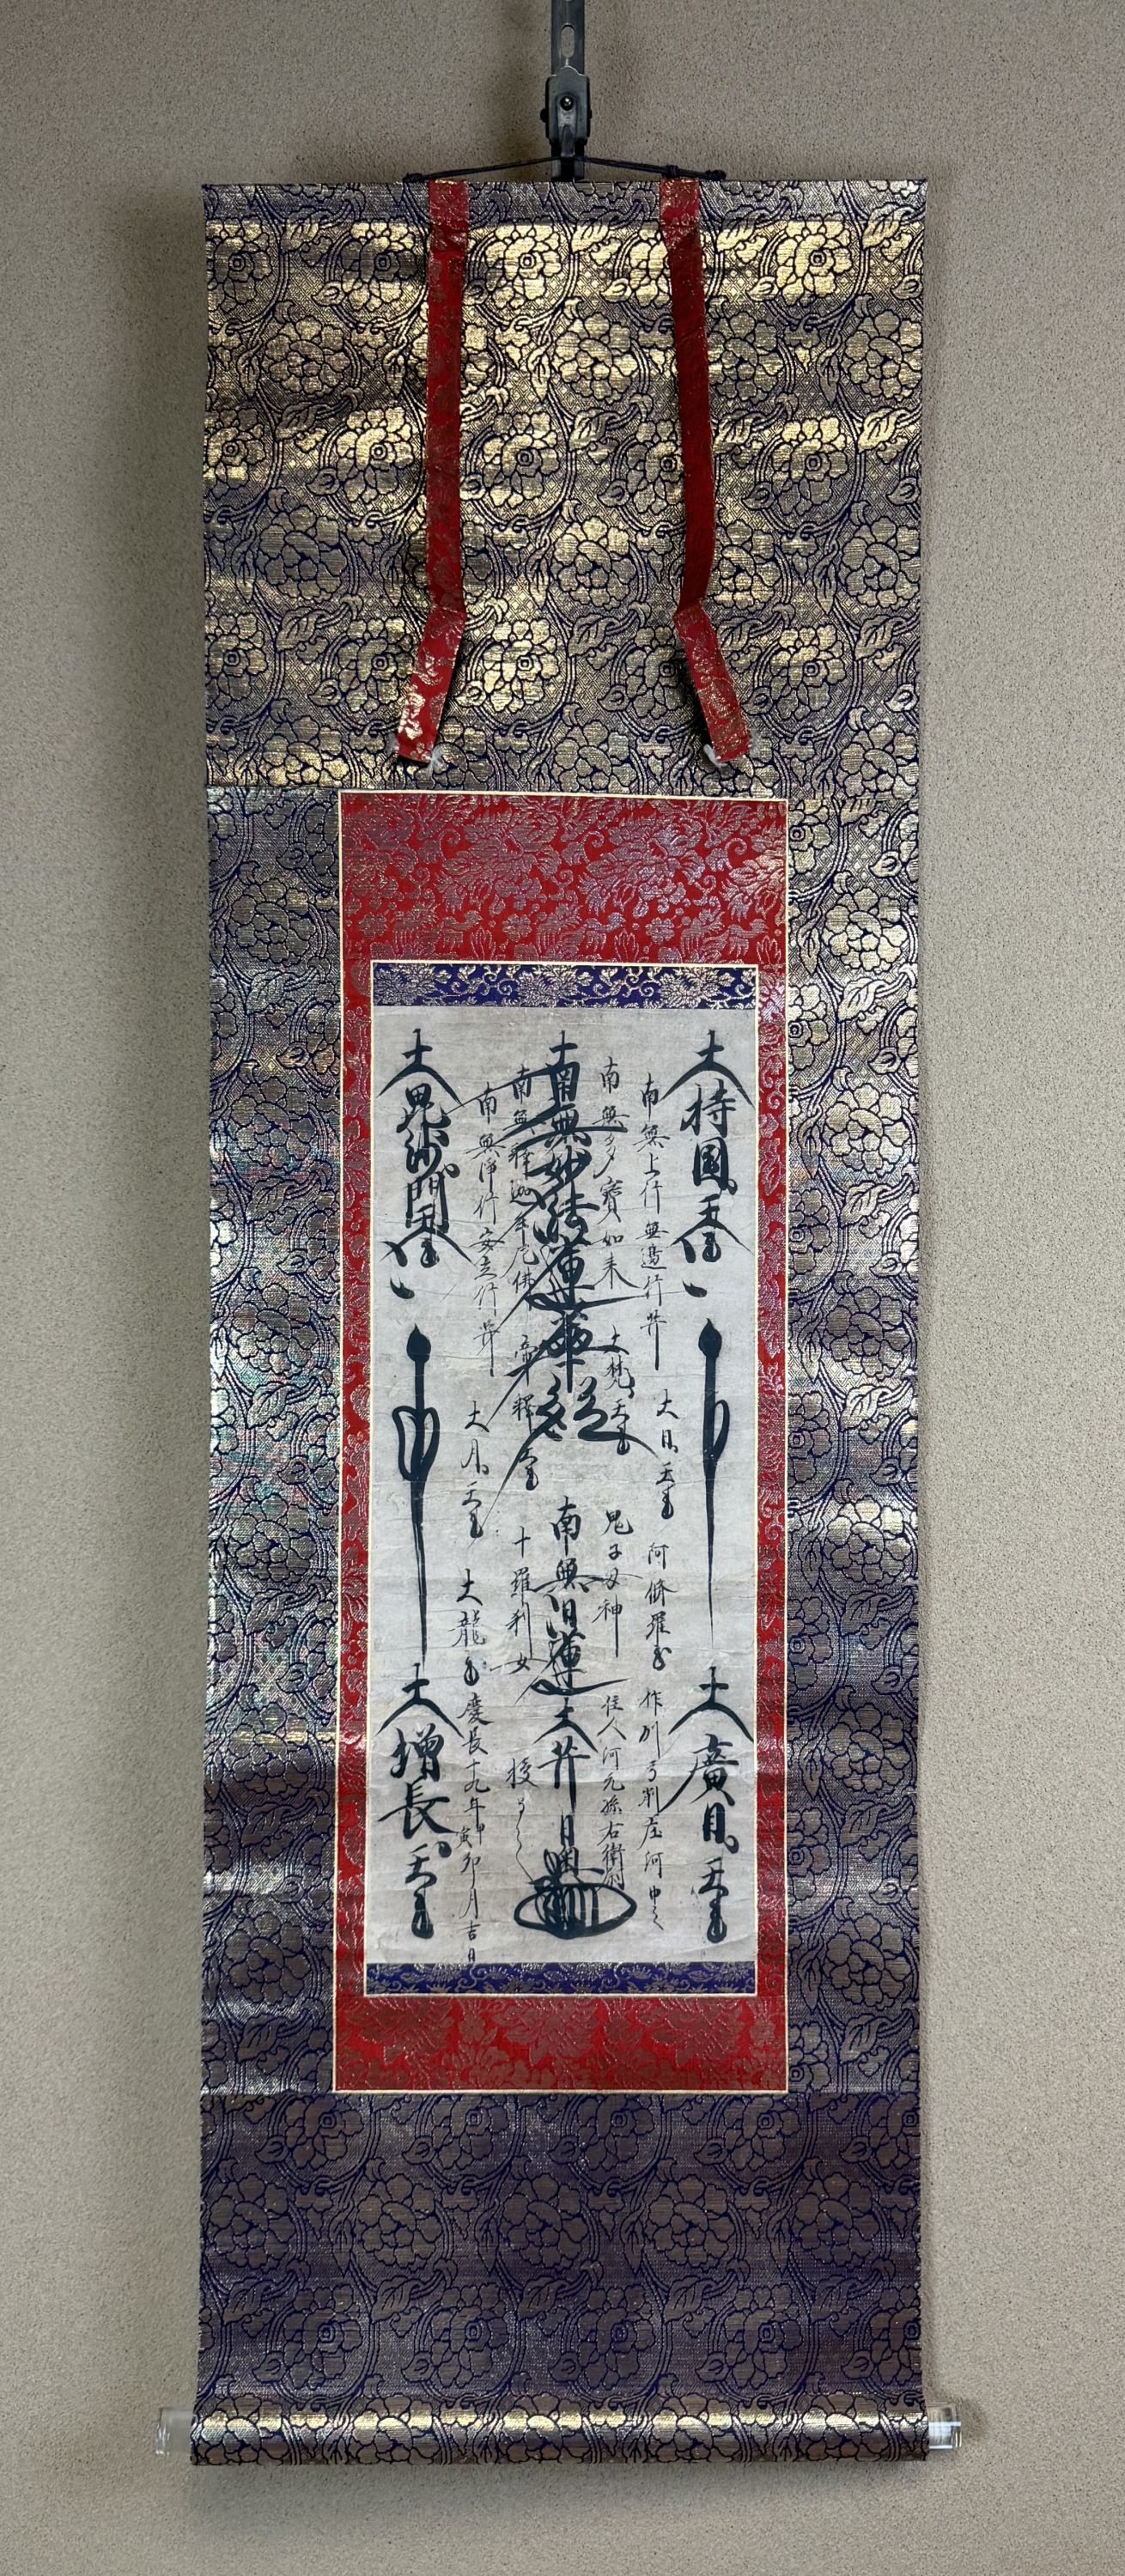 大持國天王
大廣目天王
南無上行無邊行菩薩
大日天王
阿修羅王
作州弓削庄河中之
南無多寶如来
大梵天王
鬼子母神
住人河元孫右衛門
南無妙法蓮華経
南無日蓮大菩薩
日
南無釋迦牟尼佛
帝釋天王
十羅刹女
授与之
南無浄行安立行菩薩
大月天王
大龍王
慶長十九年甲寅卯月吉日
大毘沙門天王
大増長天王